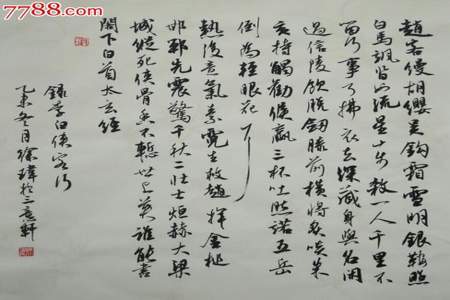 7788.com
趙客縵胡纓吳鉤霜雪明銀鞍照
白馬颯沓如流星十步殺一人千里不
留行事了拂衣去深藏身與名閑
過信陵飲脫劍膝前橫將炙啖朱
亥持觴勸侯嬴三杯吐然諾五岳
倒為輕眼花耳
熱後意氣素霓生救趙揮金槌
邯鄲先震驚千秋二壯士烜赫大梁
城縱死俠骨香不慚世上英誰能書
閣下白首太玄經
錄李白俠客行
乙未冬月徐瑋於三意軒